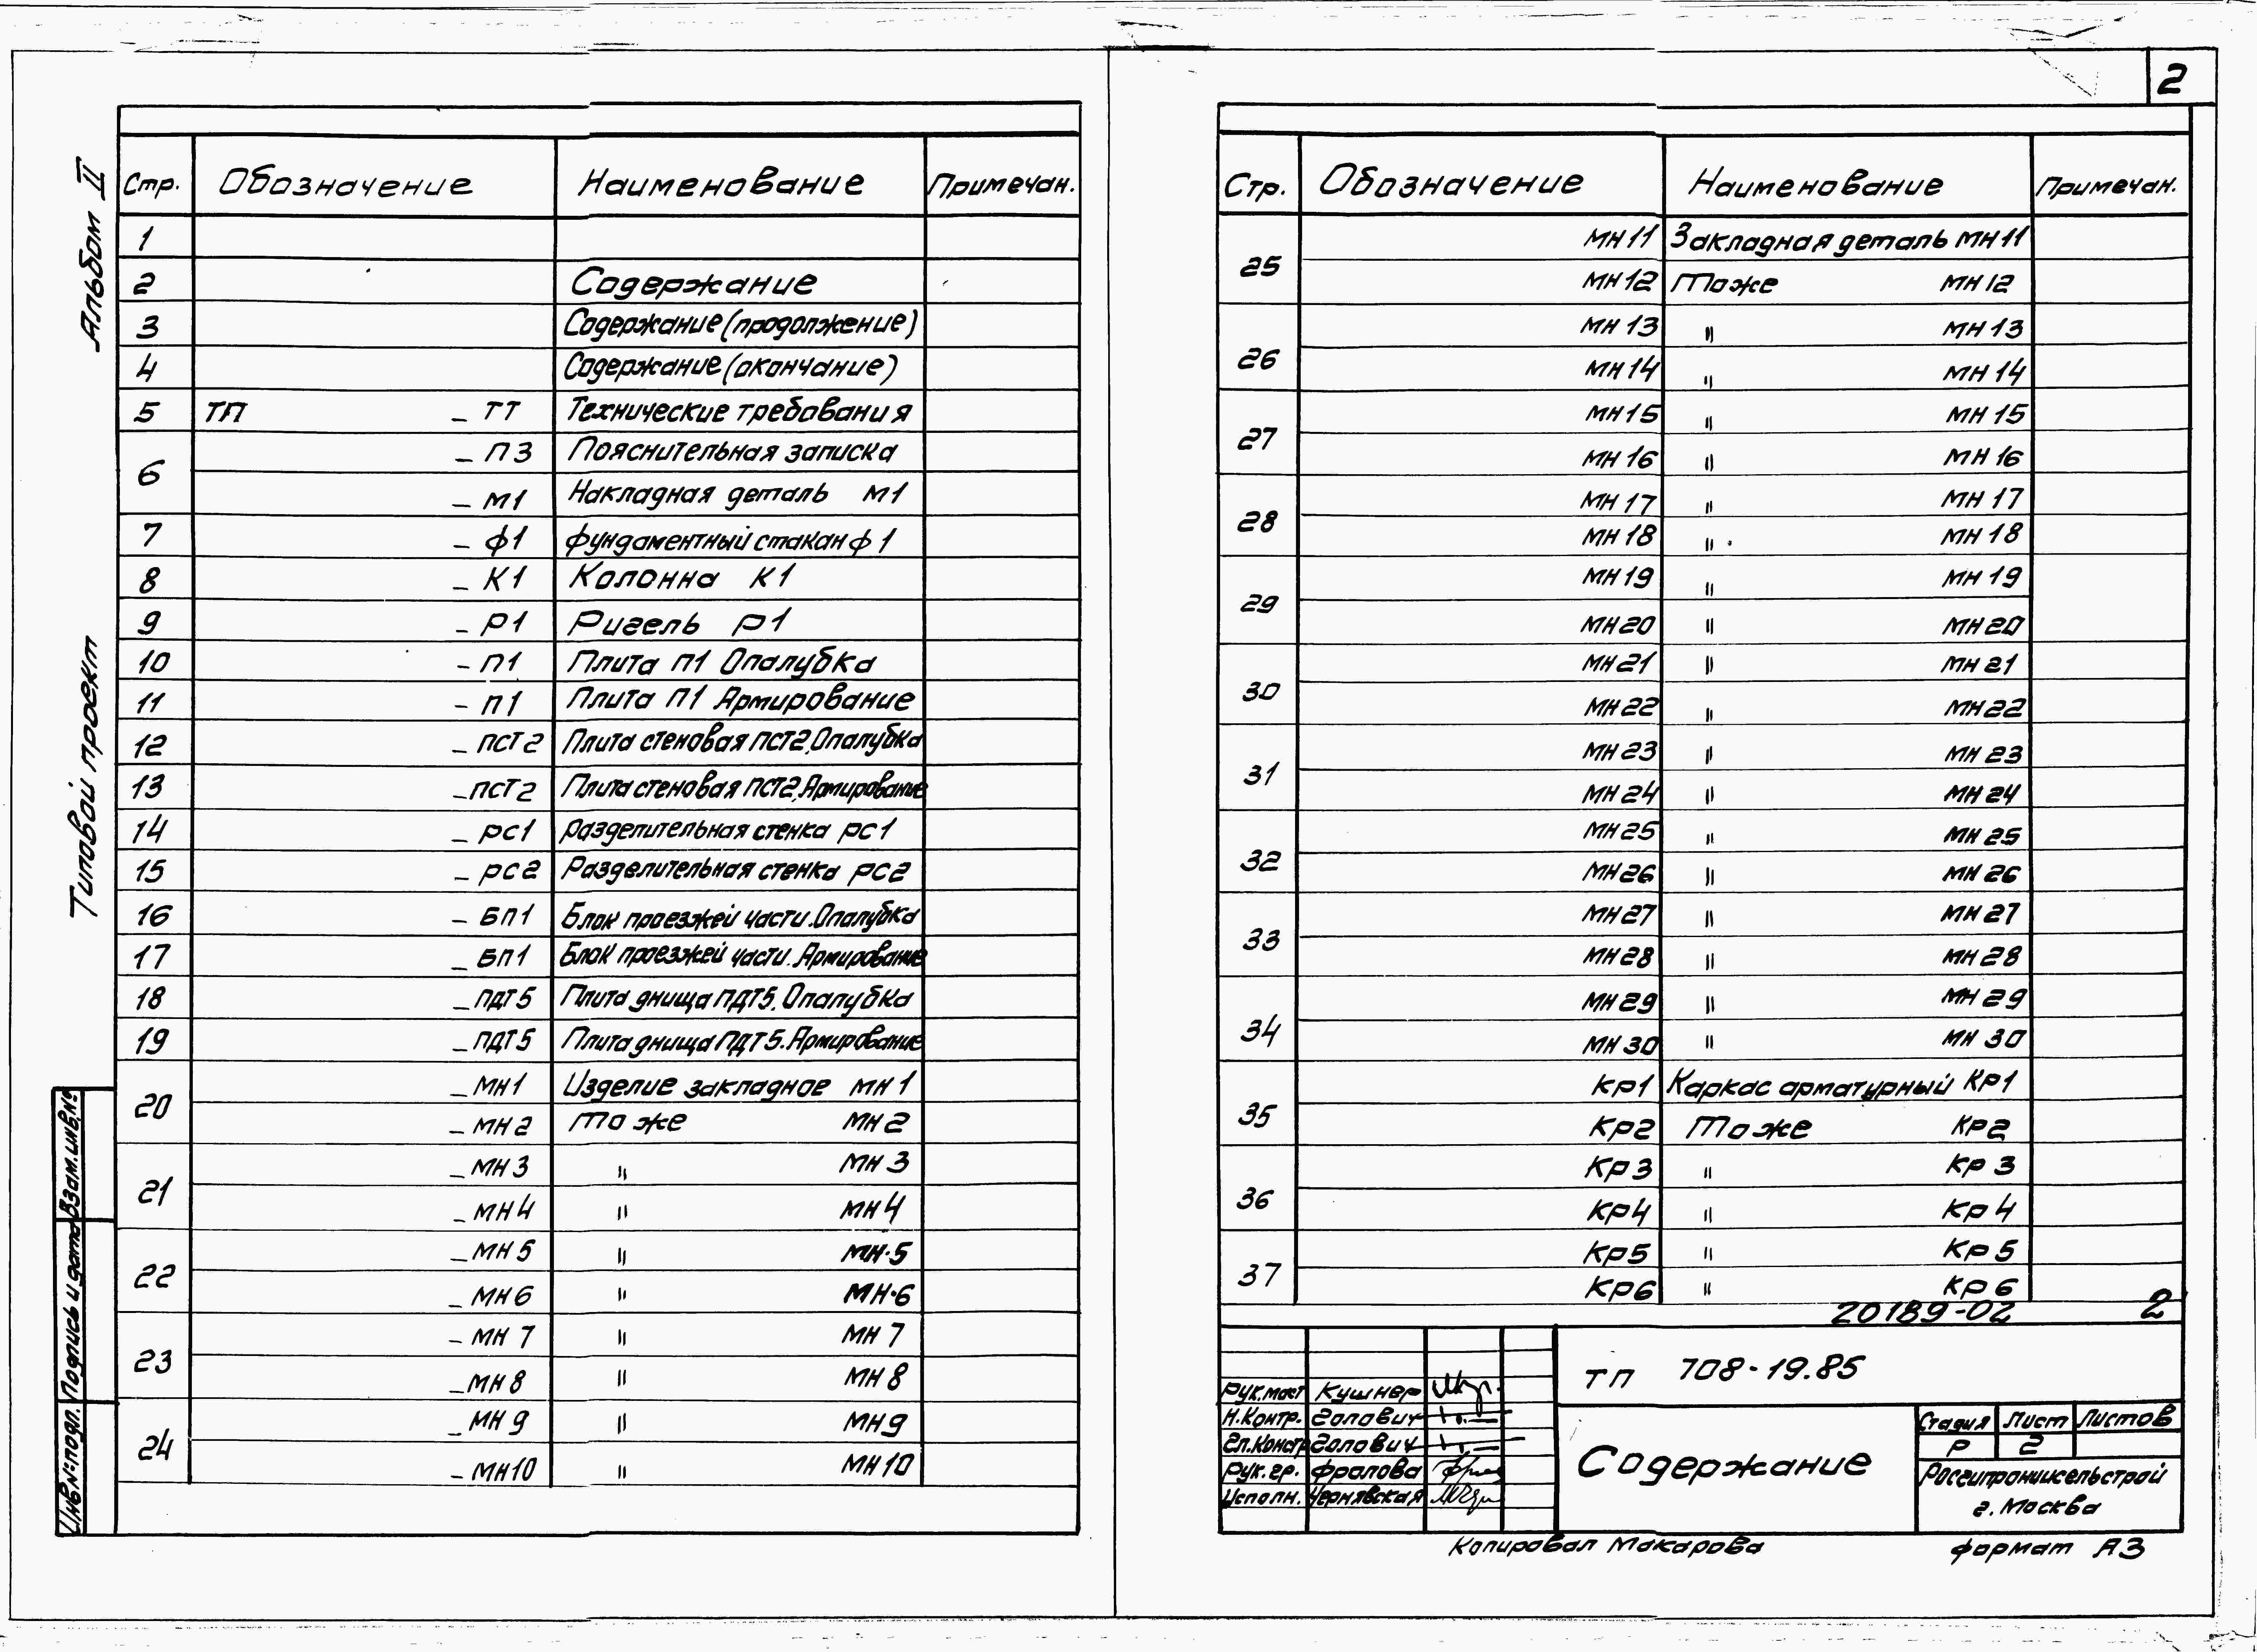 2
Альбом II
Типовой проект
Взам.инв.№
Подпись и дата
Инв№подл.
Стр. Обозначение Наименование Примечан.
1
2 Содержание
3 Содержание (продолжение)
4 Содержание (окончание)
5 ТП – ТТ Технические требования
6 – ПЗ Пояснительная записка
– М1 Накладная деталь М1
7 – Ф1 Фундаментный стакан Ф1
8 – К1 Колонна К1
9 – Р1 Ригель Р1
10 – П1 Плита П1 Опалубка
11 – П1 Плита П1 Армирование
12 – ПСТ2 Плита стеновая ПСТ2. Опалубка
13 – ПСТ2 Плита стеновая ПСТ2. Армирование
14 – РС1 Разделительная стенка РС1
15 – РС2 Разделительная стенка РС2
16 – БП1 Блок проезжей части. Опалубка
17 – БП1 Блок проезжей части. Армирование
18 – ПДТ5 Плита днища ПДТ5. Опалубка
19 – ПДТ5 Плита днища ПДТ5. Армирование
20 – МН1 Изделие закладное МН1
– МН2 То же МН2
21 – МН3 " МН3
– МН4 " МН4
22 – МН5 " МН·5
– МН6 " МН·6
23 – МН7 " МН7
– МН8 " МН8
24 – МН9 " МН9
– МН10 " МН10
Стр. Обозначение Наименование Примечан.
25 МН11 Закладная деталь МН11
МН12 То же МН12
26 МН13 " МН13
МН14 " МН14
27 МН15 " МН15
МН16 " МН16
28 МН17 " МН17
МН18 " МН18
29 МН19 " МН19
МН20 " МН20
30 МН21 " МН21
МН22 " МН22
31 МН23 " МН23
МН24 " МН24
32 МН25 " МН25
МН26 " МН26
33 МН27 " МН27
МН28 " МН28
34 МН29 " МН29
МН30 " МН30
35 Кр1 Каркас арматурный Кр1
Кр2 То же Кр2
36 Кр3 " Кр3
Кр4 " Кр4
37 Кр5 " Кр5
Кр6 " Кр6
20189-02 2
ТП 708-19.85
Рук.маст Кушнер
Н.Контр. Голович
Гл.Констр Голович
Рук.гр. Фролова
Исполн. Чернявская
Содержание
Стадия Лист Листов
Р 2
Росгипрониисельстрой
г. Москва
Копировал Макарова
Формат А3